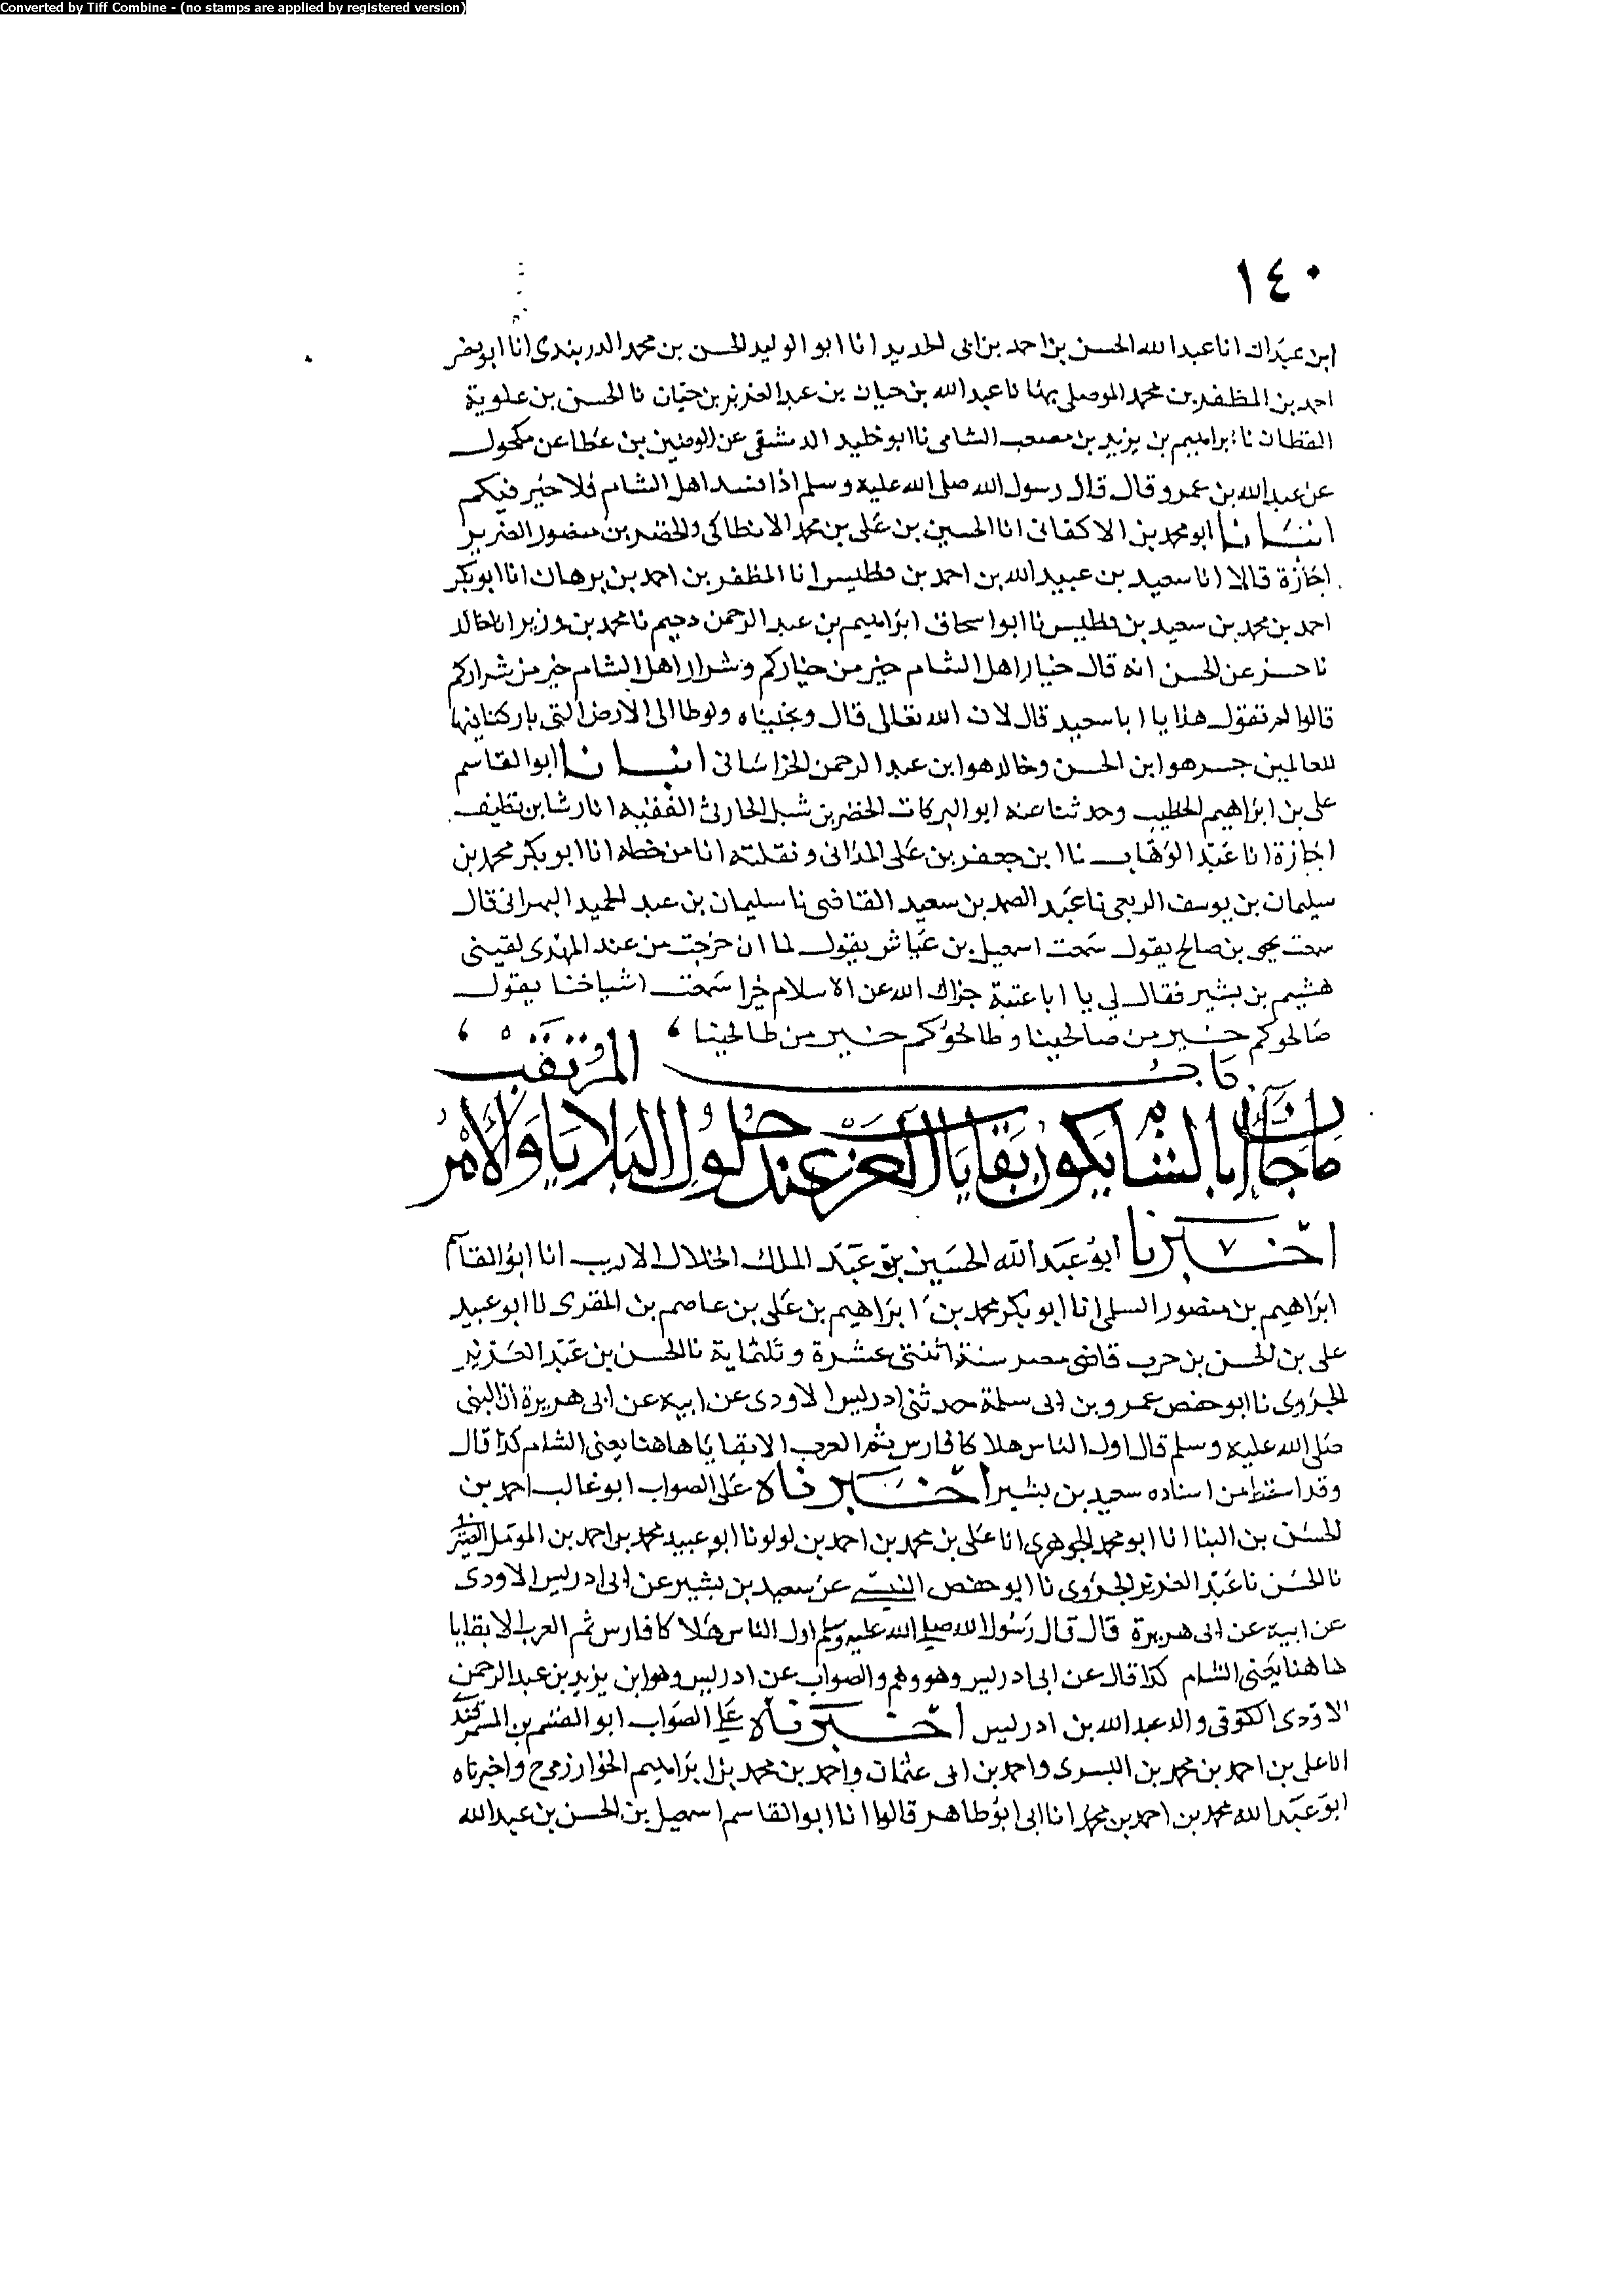 Converted by Tiff Combine - (no stamps are applied by registered version)
١٤٠
ابن عبدان انا عبد الله الحسن بن احمد بن ابي الحديد انا ابو الوليد الحسن بن محمد الدربندى انا ابو نصر
احمد بن المظفر بن محمد الموصلى بها نا عبد الله بن حيان بن عبد العزيز بن حيان نا الحسن بن علوية
القطان نا ابراهيم بن يزيد بن مصعب الشامى نا ابو خليد الدمشقى عن الوضين بن عطا عن مكحول
عن عبد الله بن عمرو قال قال رسول الله صلى الله عليه وسلم اذا فسد اهل الشام فلا خير فيكم
انبانا ابو محمد بن الاكفانى انا الحسين بن على بن محمد الانطاكى والخضر بن منصور الضرير
اجازة قالا انا سعيد بن عبيد الله بن احمد بن فطيس انا المظفر بن احمد بن برهان انا ابو بكر
احمد بن محمد بن سعيد بن فطيس نا ابو اسحاق ابراهيم بن عبد الرحمن دحيم نا محمد بن وزير انا خالد
نا جسر عن الحسن انه قال خيار اهل الشام خير من خياركم وشرار اهل الشام خير من شراركم
قالوا لم تقول هذا يا ابا سعيد قال لان الله تعالى قال ونجيناه ولوطا الى الارض التى باركنا فيها
للعالمين جسر هو ابن الحسن وخالد هو ابن عبد الرحمن الخراسانى انبانا ابو القاسم
على بن ابراهيم الخطيب وحدثنا عنه ابو البركات الخضر بن شبل الحارثى الفقيه انا رشا بن نظيف
اجازة انا عبد الوهاب نا ابن جعفر بن على المدانى ونقلته انا من خطه انا ابو بكر محمد بن
سليمان بن يوسف الربعى نا عبد الصمد بن سعيد القاضى نا سليمان بن عبد الحميد البهرانى قال
سمعت يحيى بن صالح يقول سمعت اسمعيل بن عياش يقول لما ان خرجت من عند المهدى لقينى
هشيم بن بشير فقال لي يا ابا عتبة جزاك الله عن الاسلام خيرا سمعت اشياخنا يقول
صالحوكم خير من صالحينا وطالحوكم خير من طالحينا
باب
ما جاء ان بالشام يكون بقايا العرب عند حلول البلايا والامر المرتقب
اخبرنا ابو عبد الله الحسين بن عبد الملك الخلال الاديب انا ابو القاسم
ابراهيم بن منصور السلمى انا ابو بكر محمد بن ابراهيم بن على بن عاصم بن المقرى نا ابو عبيد
على بن الحسن بن حرب قاضى مصر سنة اثنتى عشرة وثلثماية نا الحسن بن عبد العزيز
الجروى نا ابو حفص عمرو بن ابى سلمة حدثنى ادريس الاودى عن ابيه عن ابى هريرة ان النبى
صلى الله عليه وسلم قال اول الناس هلاكا فارس ثم العرب الا بقايا هاهنا يعنى الشام كذا قال
وقد اسقط من اسناده سعيد بن بشير اخبرناه على الصواب ابو غالب احمد بن
الحسن بن البنا انا ابو محمد الجوهرى انا على بن محمد بن احمد بن لولو نا ابو عبيد محمد بن احمد بن المومل الصيرفى
نا الحسن نا عبد العزيز الجروى نا ابو حفص التنيسى عن سعيد بن بشير عن ابى ادريس الاودى
عن ابيه عن ابى هريرة قال قال رسول الله صلى الله عليه وسلم اول الناس هلاكا فارس ثم العرب الا بقايا
هاهنا يعنى الشام كذا قال عن ابى ادريس وهو وهم والصواب عن ادريس وهو ابن يزيد بن عبد الرحمن
الاودى الكوفى والد عبد الله بن ادريس اخبرناه على الصواب ابو القسم بن السمرقندى
انا على بن احمد بن محمد بن البسرى واحمد بن ابى عثمان واحمد بن محمد بن ابراهيم الخوارزمى ح واخبرناه
ابو عبد الله محمد بن احمد بن محمد انا ابى ابو طاهر قالوا انا ابو القاسم اسمعيل بن الحسن بن عبد الله